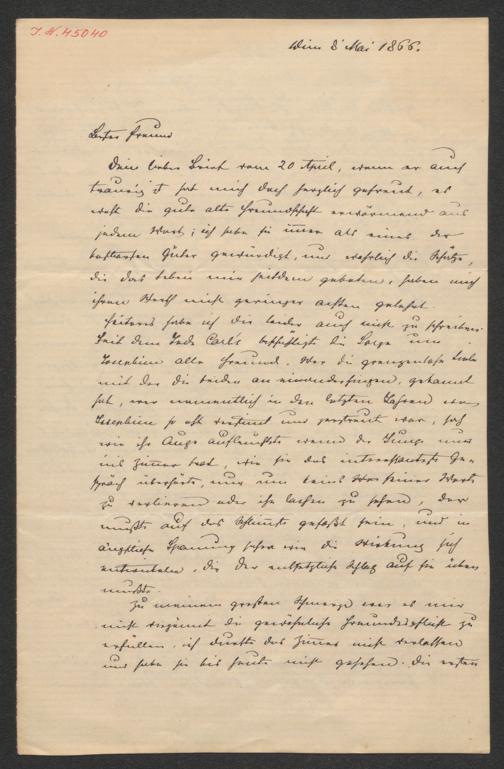 I. N. 45040
Wien 8' Mai 1866.
Bester Freund
Dein lieber Brief vom 20 April, wenn er auch
traurig ist hat mich doch herzlich gefreut, es
weht die gute alte Freundschaft erwärmend aus
jedem Wort; ich habe sie immer als eines der
kostbarsten Güter gewürdigt, und wahrlich die Schätze,
die das Leben mir seitdem geboten, haben mich
ihren Werth nicht geringer achten gelehrt.
Heiteres habe ich Dir leider auch nicht zu schreiben.
Seit dem Tode Carl's beschäftigte die Sorge um
Josephine alle Freunde. Wer die grenzenlose Liebe
mit der die beiden an einander hingen, gekannt
hat, wer namentlich in den letzten Jahren wo
Josephine so oft verstimt und zerstreut war, sah
wie ihr Auge aufleuchtete wenn der Junge nur
ins Zimmer trat, wie sie das interessanteste Ge-
spräch überhörte, nur um keins seiner Worte
zu verlieren oder ihn lachen zu sehen, der
mußte auf das Schlimste gefaßt sein, und in
ängstlicher Spanung sehen wie die Wirkung sich
entwickeln, die der entsetzliche Schlag auf sie üben
mußte.
Zu meinem großen Schmerze war es mir
nicht vergönnt die gewöhnliche Freundespflicht zu
erfüllen, ich durfte das Zimmer nicht verlassen
und habe sie bis heute nicht gesehen. Die ersten